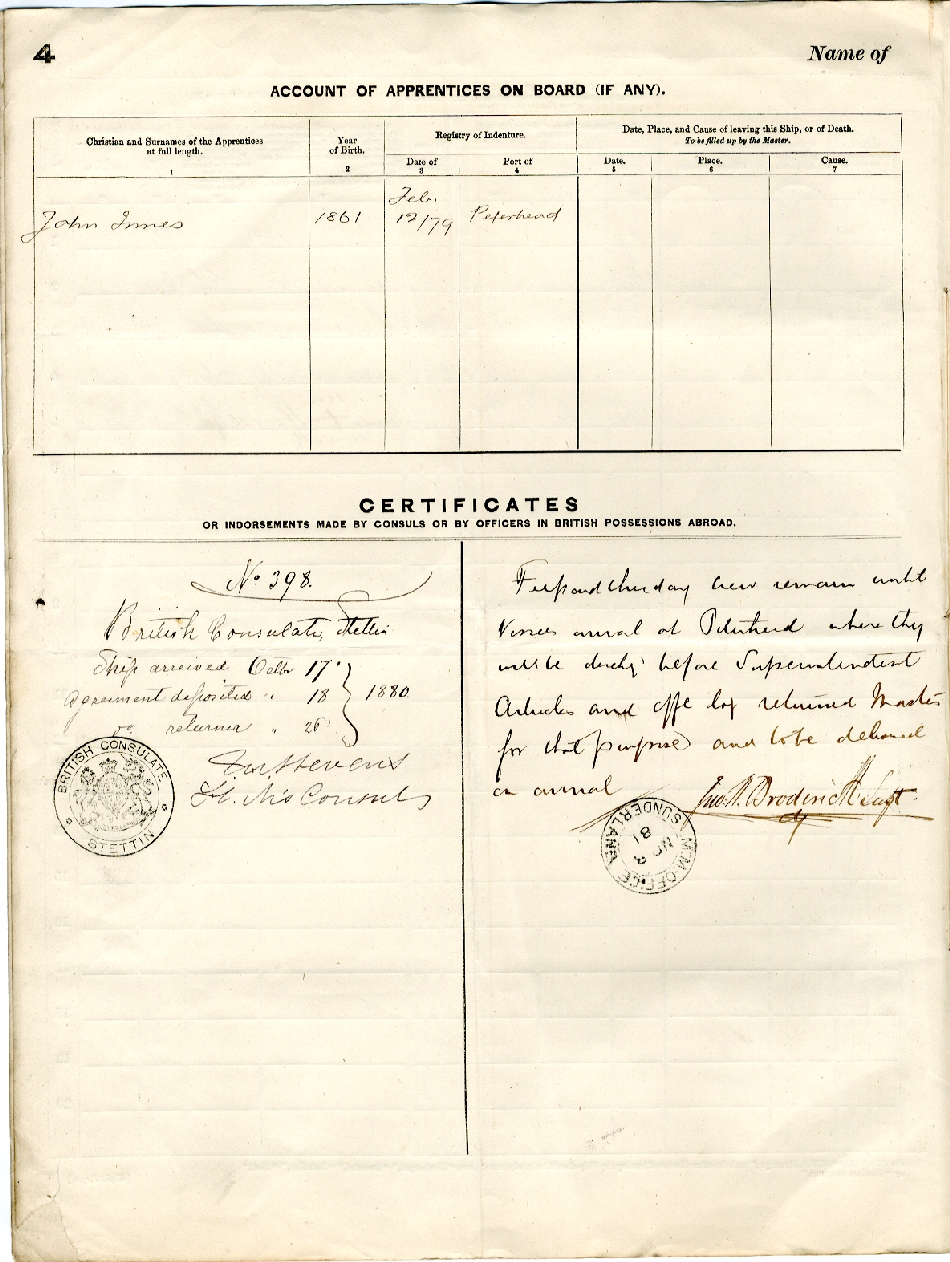 4
Name of
ACCOUNT OF APPRENTICES ON BOARD (IF ANY).
Christian and Surnames of the Apprentices at full length.
1
Year of Birth.
2
Registry of Indenture.
Date of
3
Port of
4
Date, Place, and Cause of leaving this Ship, or of Death.
To be filled up by the Master.
Date.
5
Place.
6
Cause.
7
John Innes 1861 Feb. 12/79 Peterhead
CERTIFICATES
OR INDORSEMENTS MADE BY CONSULS OR BY OFFICERS IN BRITISH POSSESSIONS ABROAD.
No 398.
British Consulate, Stettin
Ship arrived Octbr 17
Agreement deposited " 18 } 1880
do returned " 26
Stevens
Consul
BRITISH CONSULATE
STETTIN
remain until
arrival at Peterhead where they
will be before Superintendent
Articles and returned Master
for that purpose and to be delivered
on arrival
Jno. Broderick Supt
M.M. OFFICE SUNDERLAND
81